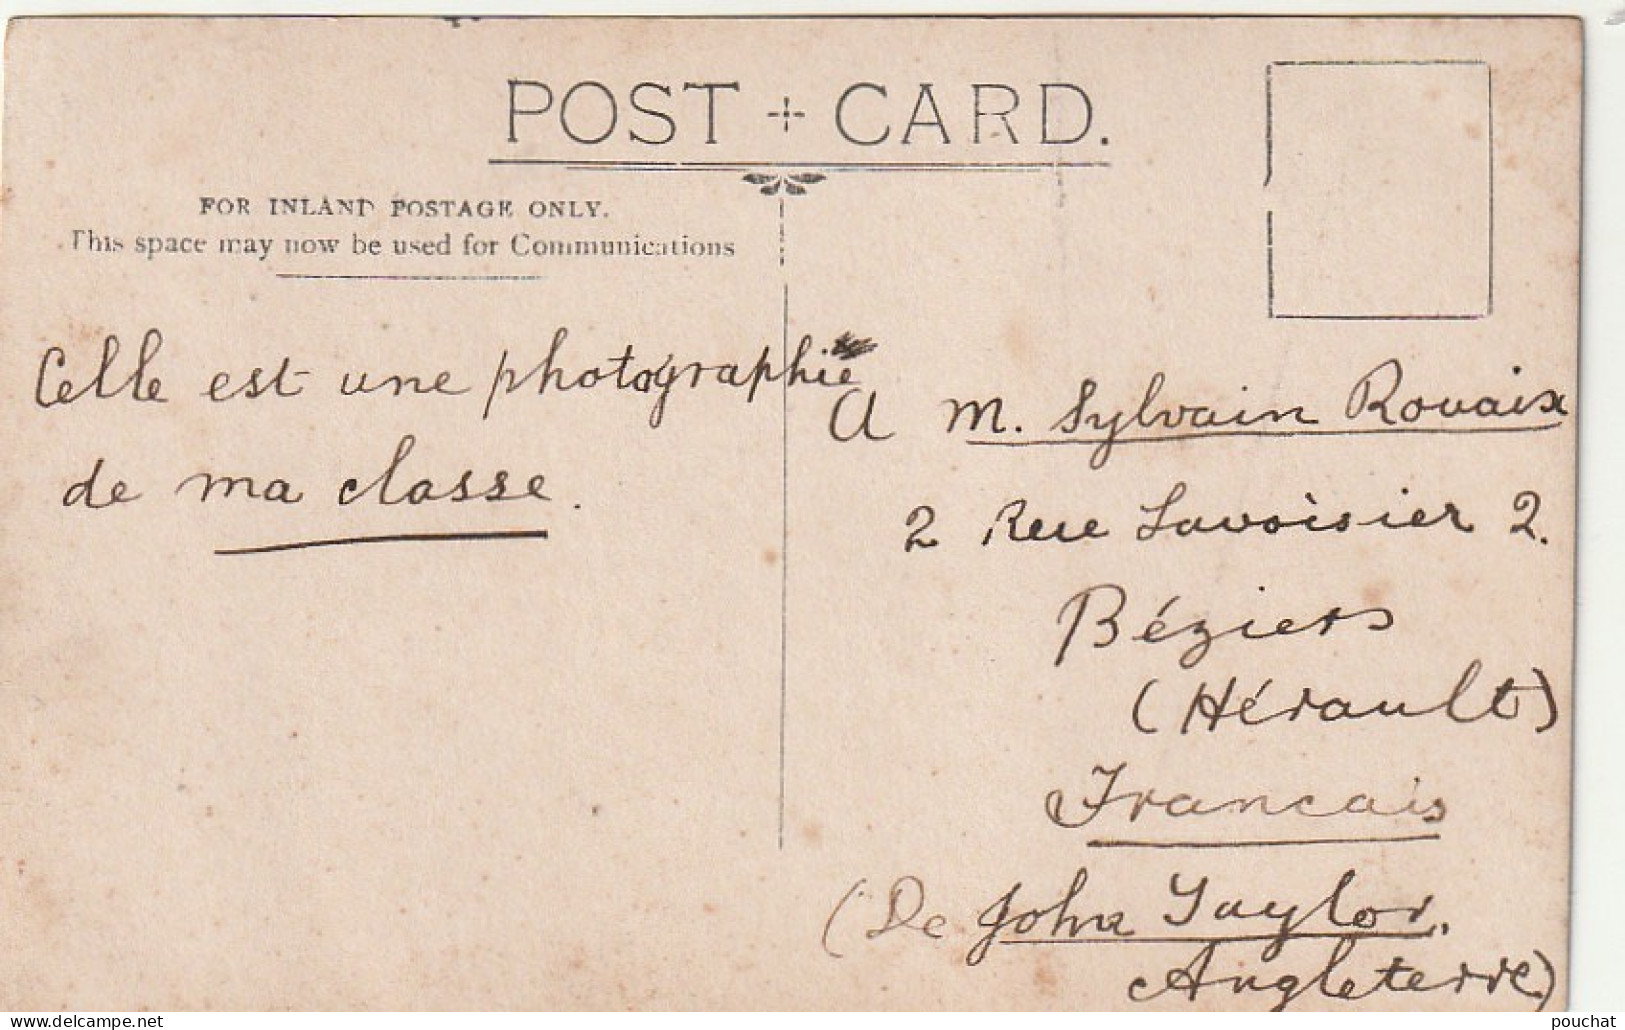 POST + CARD.
FOR INLAND POSTAGE ONLY.
This space may now be used for Communications
Celle est une photographie
de ma classe.
A M. Sylvain Rouaix
2 Rue Lavoisier 2.
Béziers
(Hérault)
Francais
(De John Taylor.
Angleterre)
delcampe.net
pouchat